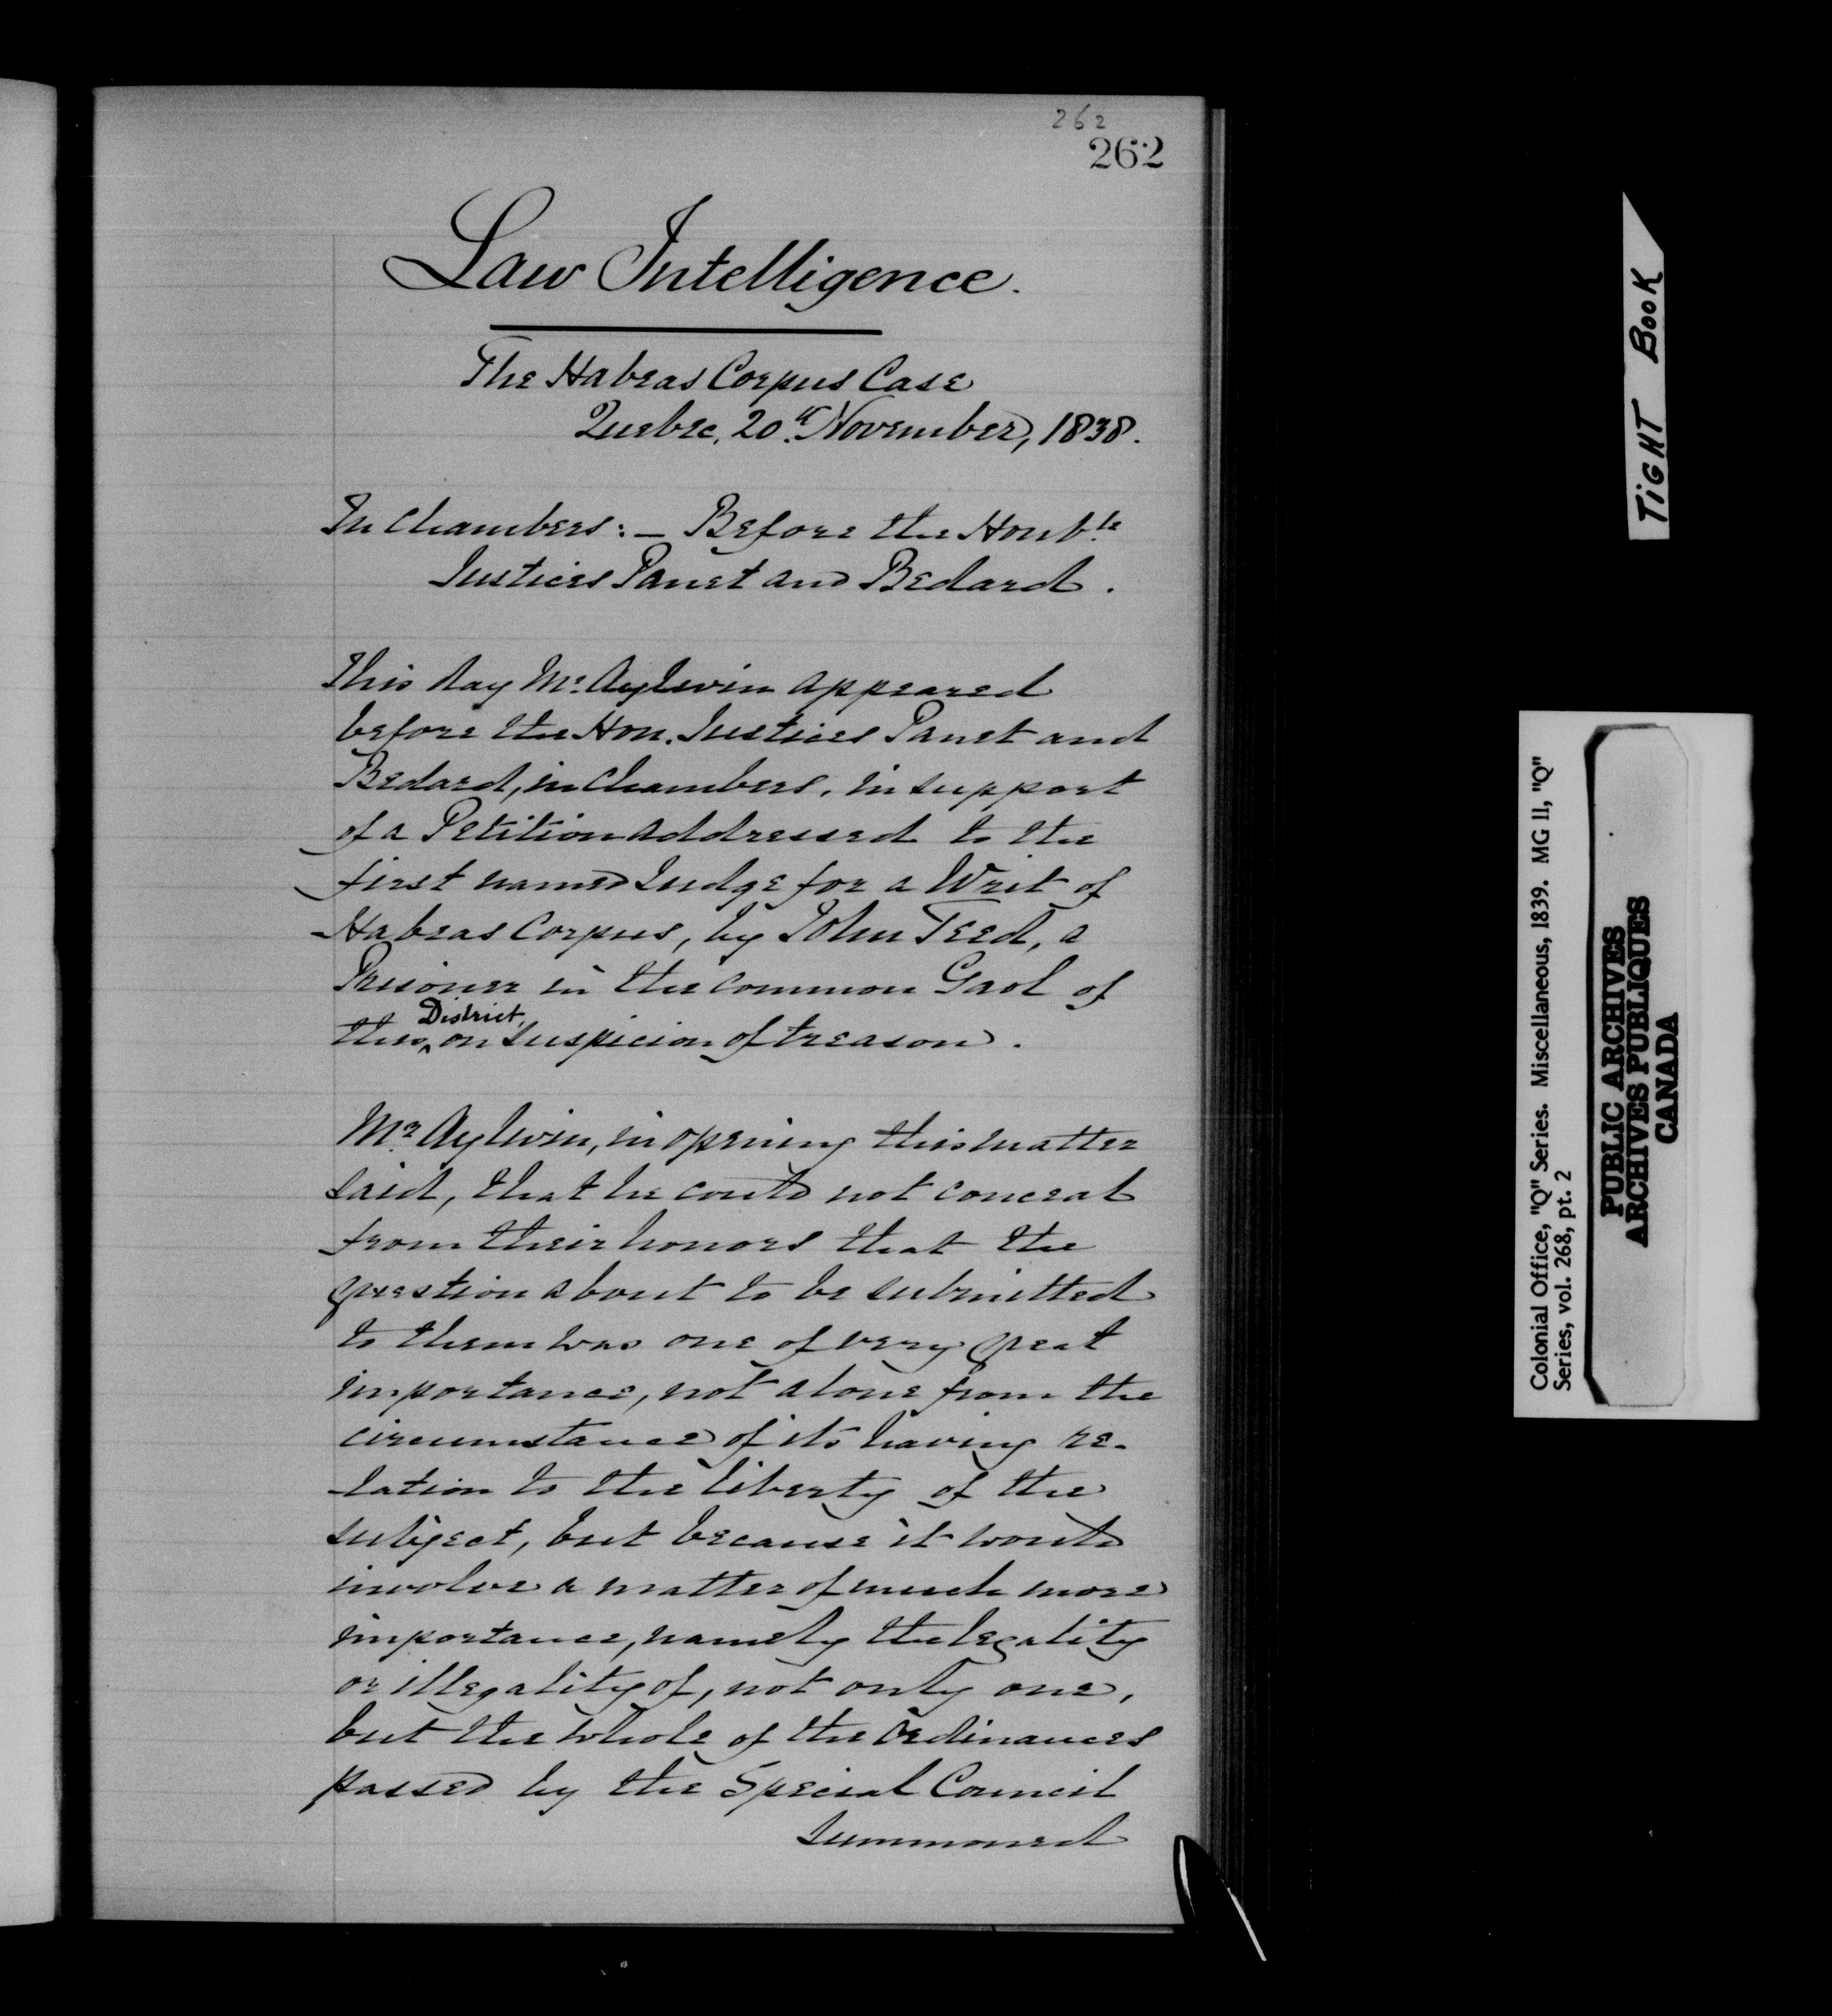 262
262
Law Intelligence.
The Habeas Corpus Case
Quebec, 20th November, 1838.
In Chambers: – Before the Honble
Justices Panet and Bedard.
This day Mr. Aylwin appeared
before the Hon. Justices Panet and
Bedard, in Chambers, in support
of a Petition addressed to the
first named Judge for a Writ of
Habeas Corpus, by John Teed, a
Prisoner in the common Gaol of
this District, on suspicion of treason.
Mr. Aylwin, in opening this matter
said, that he could not conceal
from their honors that the
question about to be submitted
to them was one of very great
importance, not alone from the
circumstance of its having re-
lation to the liberty of the
subject, but because it would
involve a matter of much more
importance, namely the legality
or illegality of, not only one,
but the whole of the Ordinances
passed by the Special Council
summoned
TIGHT BOOK
Colonial Office, "Q" Series. Miscellaneous, 1839. MG 11, "Q"
Series, vol. 268, pt. 2
PUBLIC ARCHIVES
ARCHIVES PUBLIQUES
CANADA